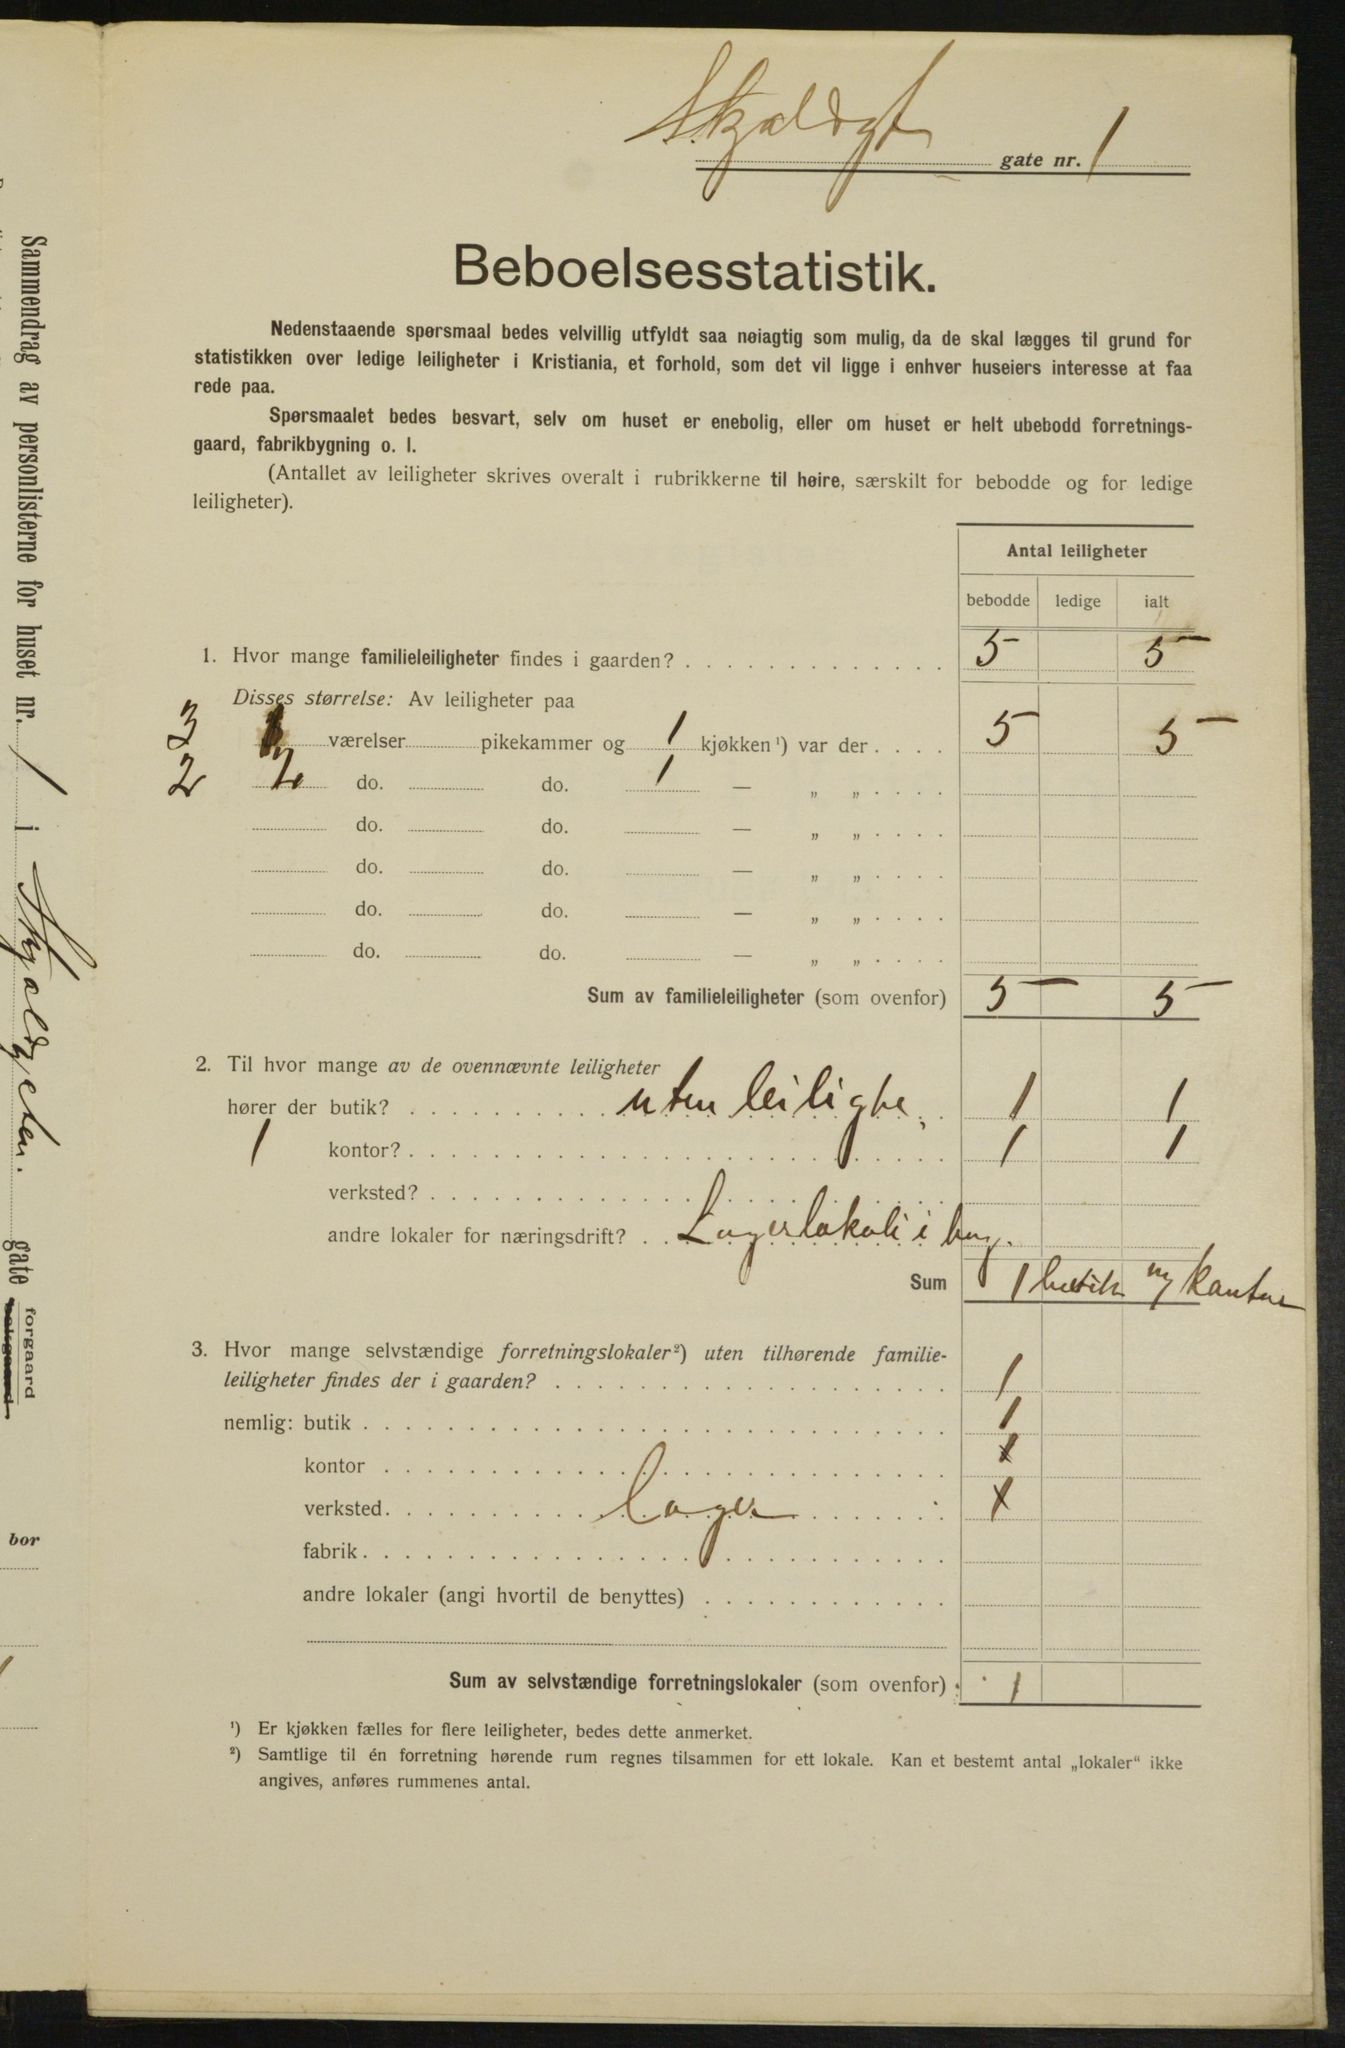 Skjoldgt gate nr. 1
Beboelsesstatistik.
Nedenstaaende spørsmaal bedes velvillig utfyldt saa nøiagtig som mulig, da de skal lægges til grund for
statistikken over ledige leiligheter i Kristiania, et forhold, som det vil ligge i enhver huseiers interesse at faa
rede paa.
Spørsmaalet bedes besvart, selv om huset er enebolig, eller om huset er helt ubebodd forretnings-
gaard, fabrikbygning o. l.
(Antallet av leiligheter skrives overalt i rubrikkerne til høire, særskilt for bebodde og for ledige
leiligheter).
Antal leiligheter
bebodde ledige ialt
1. Hvor mange familieleiligheter findes i gaarden? 5 5
Disses størrelse: Av leiligheter paa
3 værelser pikekammer og 1 kjøkken ¹) var der 5 5
2 2 do. do. 1 — „ „
do. do. — „ „
do. do. — „ „
do. do. — „ „
do. do. — „ „
Sum av familieleiligheter (som ovenfor) 5 5
2. Til hvor mange av de ovennævnte leiligheter
hører der butik? uten leilighe 1 1
1 kontor? 1 1
verksted?
andre lokaler for næringsdrift? Lagerlokale i
Sum 1 butik kontor
3. Hvor mange selvstændige forretningslokaler ²) uten tilhørende familie-
leiligheter findes der i gaarden? 1
nemlig: butik 1
kontor x
verksted. lager x
fabrik
andre lokaler (angi hvortil de benyttes)
Sum av selvstændige forretningslokaler (som ovenfor) 1
¹) Er kjøkken fælles for flere leiligheter, bedes dette anmerket.
²) Samtlige til én forretning hørende rum regnes tilsammen for ett lokale. Kan et bestemt antal „lokaler“ ikke
angives, anføres rummenes antal.
Sammendrag av personlisterne for huset nr. 1 i Skjoldgaten. gate forgaard
bakgaard
bor